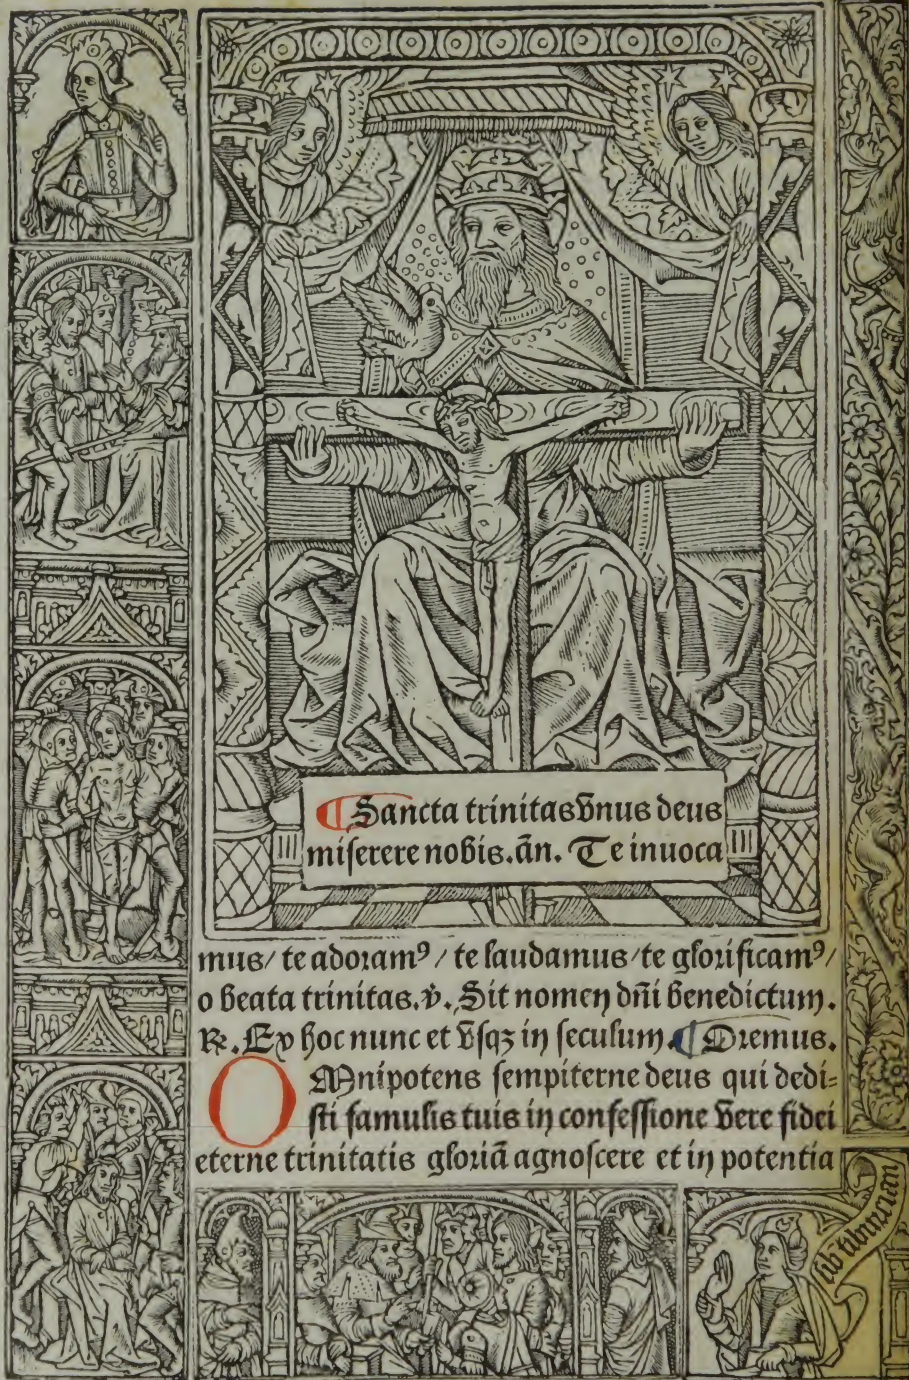 ¶Sancta trinitas vnus deus
miserere nobis. ān. Te inuoca
mus/ te adoramꝰ/ te laudamus/ te glorificamꝰ/
o beata trinitas. ℣. Sit nomen dn̄i benedictum.
℟. Ex hoc nunc et vsqꝫ in seculum. ¶Oremus.
OMnipotens sempiterne deus qui dedi⸗
sti famulis tuis in confessione vere fidei
eterne trinitatis gloriā agnoscere et in potentia
sib tiburtina